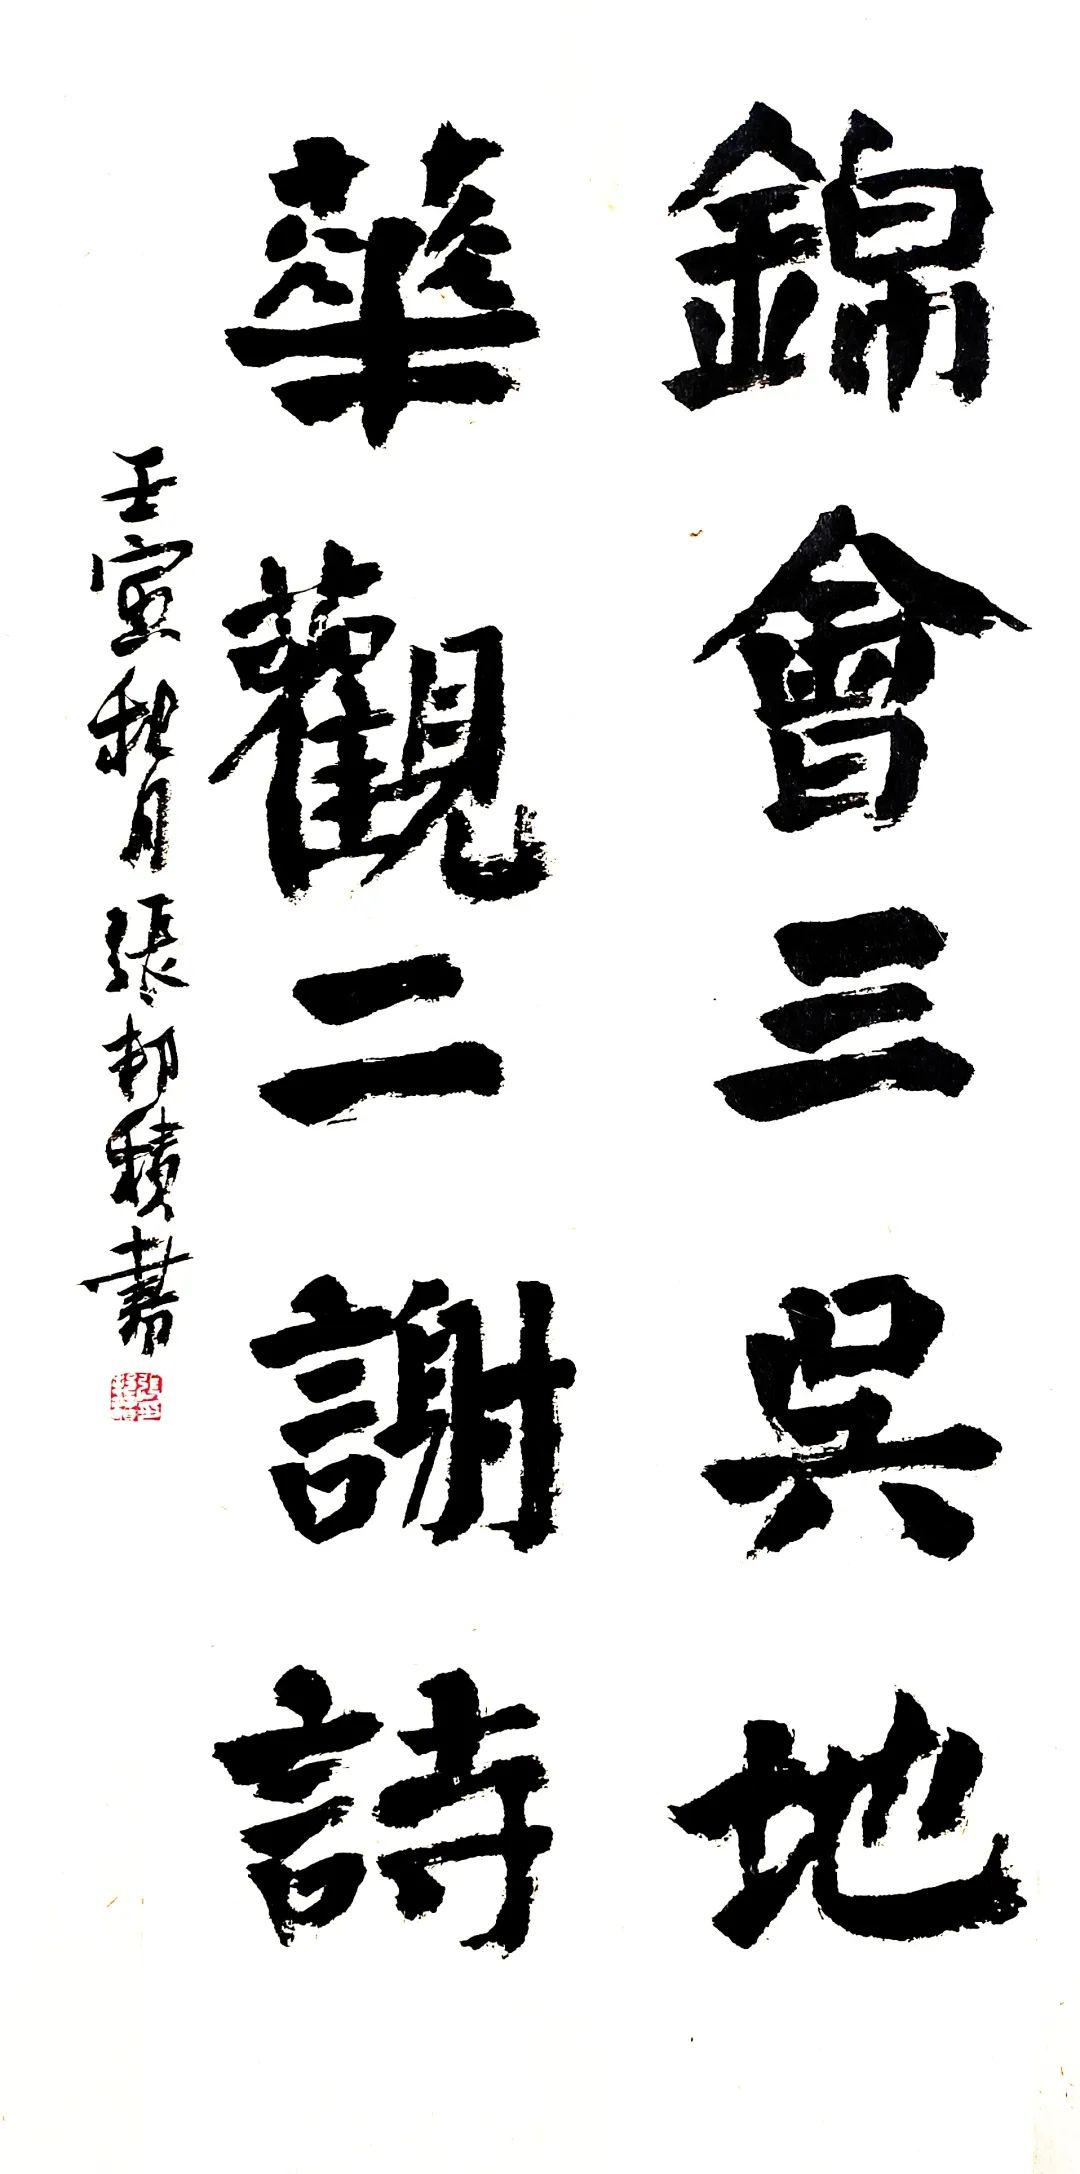 錦會三吳地
華觀二謝詩
壬寅秋月張邦積書